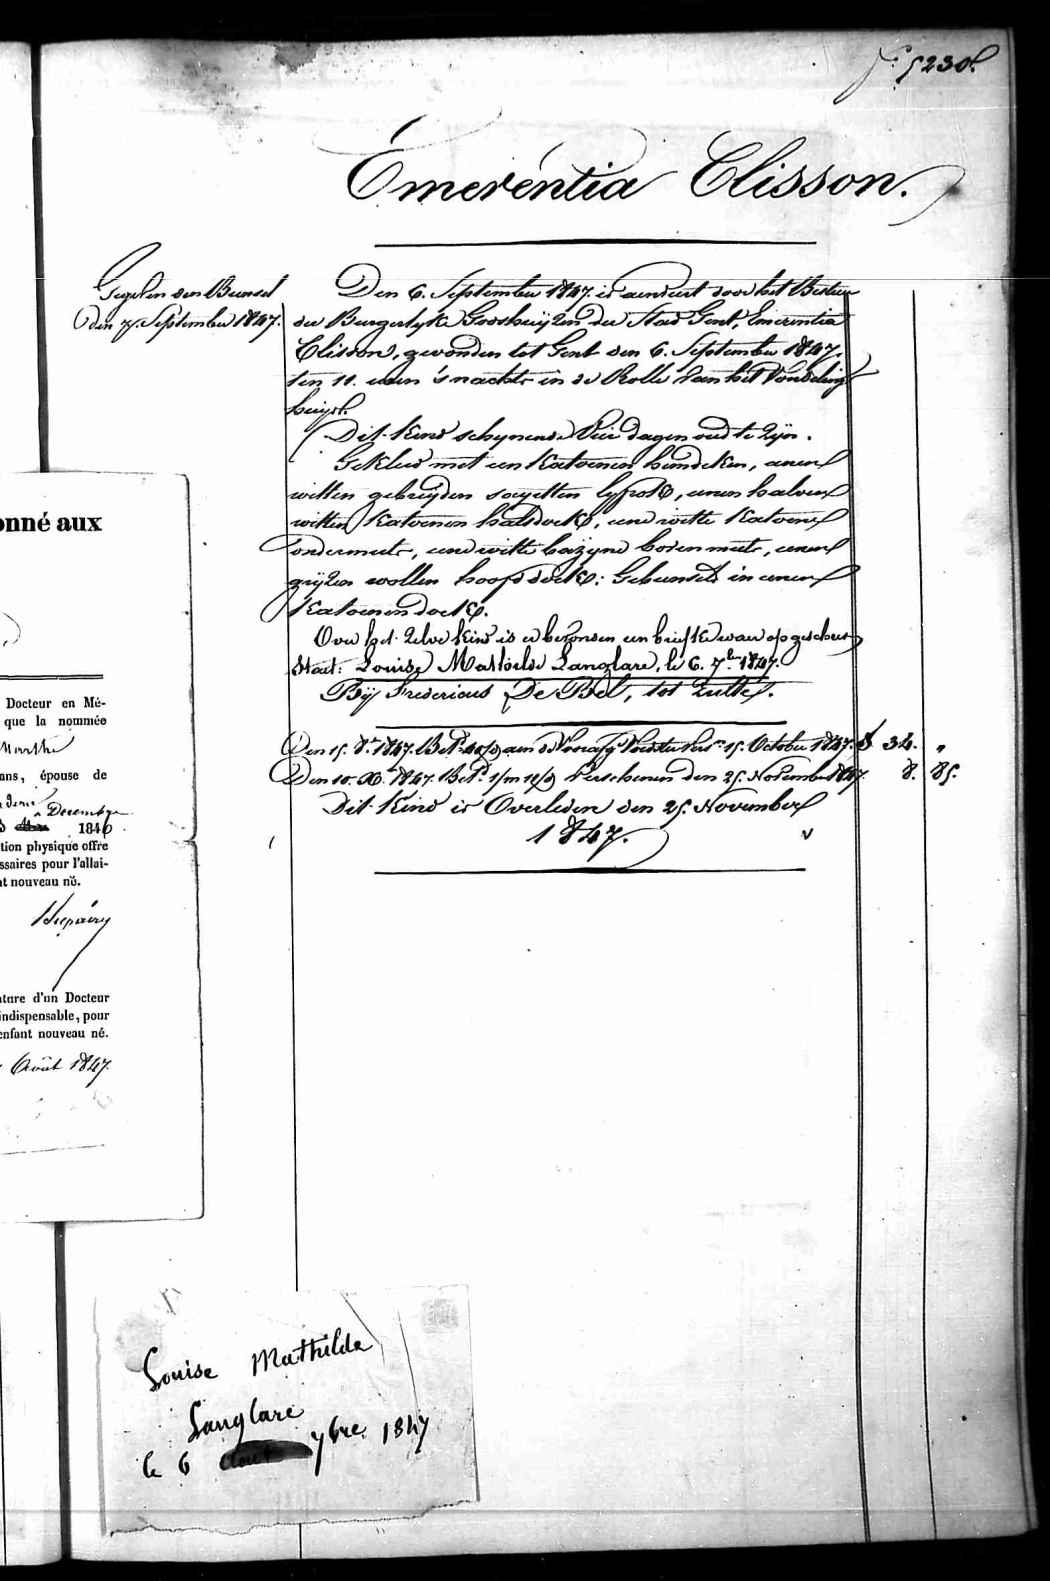 5230.
Emeréntia Clisson.
den 7. September 1847.
Den 6. September 1847. is aenveert door het Bestier
der Burgerlyke Godshuÿzen der Stad Gent, Emerentia
Clisson, gevonden tot Gent den 6. September 1847.
ten 11. uren 's nachts in de Rolle van het Vondeling
huys.
Dit kind schynende Vier dagen oud te zyn.
Gekleed met een katoenen hemdeken, eenen
witten gebreijden sayetten lyfrok, eenen halven
witten katoenen halsdoek, eene witte katoene
ondermuts, eene witte bazyne bovenmuts, eenen
gryzen wollen hoofddoek; Gebunseld in eenen
katoenen doek.
Over het zelve kind is er bevonden een briefke waer op geschreven
Staet: Louise Mathilde Langlare, le 6. 7.bre 1847.
Bÿ Fredericus De Bel, tot Zulte.
Den 15. 8.r 1847. Bet. 15. October 1847. 34. "
Den 10. Xb. 1847. Bet. Verschenen den 25. November 1847. 8. 85.
Dit Kind is Overleden den 25. November
1847.
onné aux
Docteur en Mé-
que la nommée
Marthe
ans, épouse de
Decembre
1846
tion physique offre
ssaires pour l'allai-
nt nouveau né.
ature d'un Docteur
indispensable, pour
enfant nouveau né.
Août 1847.
Louise Mathilde
Langlare
le 6 7bre 1847